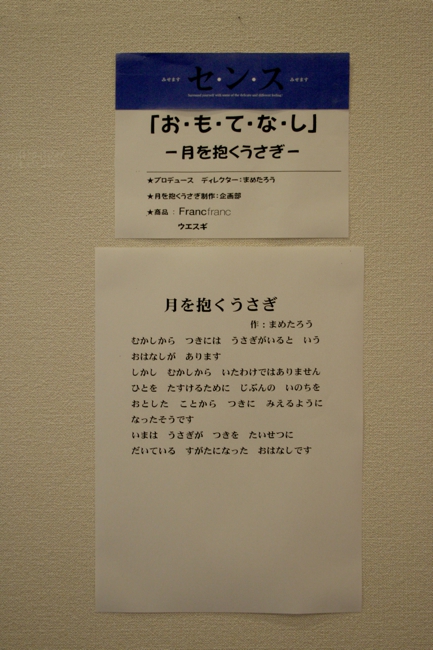 みせます セ・ン・ス みせます
「お・も・て・な・し」
－月を抱くうさぎ－
★プロデュース　ディレクター：まめたろう
★月を抱くうさぎ制作：企画部
★商品：Francfranc
ウエスギ
月を抱くうさぎ
作：まめたろう
むかしから　つきには　うさぎがいると　いう
おはなしが　あります
しかし　むかしから　いたわけではありません
ひとを　たすけるために　じぶんの　いのちを
おとした　ことから　つきに　みえるように
なったそうです
いまは　うさぎが　つきを　たいせつに
だいている　すがたになった　おはなしです